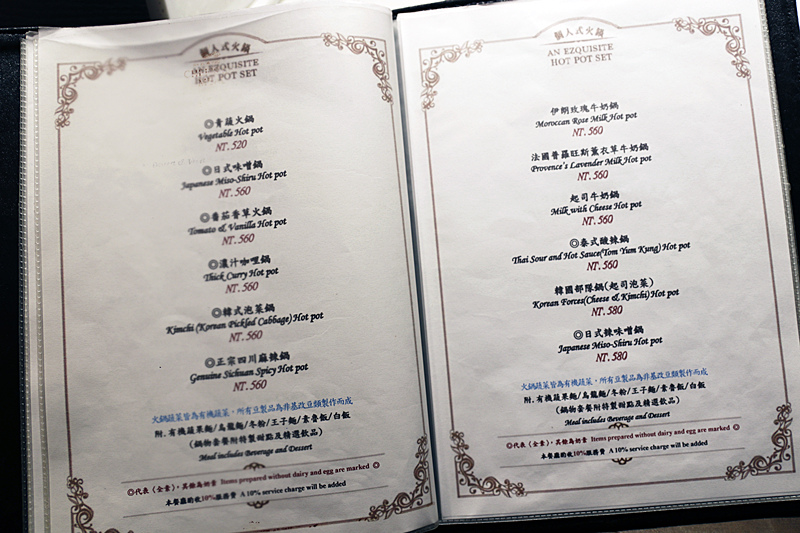 個人式火鍋
AN EZQUISITE
HOT POT SET
◎青蔬火鍋
Vegetable Hot pot
NT. 520
◎日式味噌鍋
Japanese Miso-Shiru Hot pot
NT. 560
◎番茄香草火鍋
Tomato & Vanilla Hot pot
NT. 560
◎濃汁咖哩鍋
Thick Curry Hot pot
NT. 560
◎韓式泡菜鍋
Kimchi (Korean Pickled Cabbage) Hot pot
NT. 560
◎正宗四川麻辣鍋
Genuine Sichuan Spicy Hot pot
NT. 560
火鍋蔬菜皆為有機蔬菜，所有豆製品為非基改豆類製作而成
附. 有機蔬果麵/烏龍麵/冬粉/王子麵/素魯飯/白飯
(鍋物套餐附特製甜點及精選飲品)
Meal includes Beverage and Dessert
◎代表《全素》，其餘為奶素 Items prepared without dairy and egg are marked ◎
本餐廳酌收10%服務費 A 10% service charge will be added
個人式火鍋
AN EZQUISITE
HOT POT SET
伊朗玫瑰牛奶鍋
Moroccan Rose Milk Hot pot
NT. 560
法國普羅旺斯薰衣草牛奶鍋
Provence's Lavender Milk Hot pot
NT. 560
起司牛奶鍋
Milk with Cheese Hot pot
NT. 560
◎泰式酸辣鍋
Thai Sour and Hot Sauce(Tom Yum Kung) Hot pot
NT. 560
韓國部隊鍋(起司泡菜)
Korean Forces(Cheese & Kimchi) Hot pot
NT. 580
◎日式辣味噌鍋
Japanese Miso-Shiru Hot pot
NT. 580
火鍋蔬菜皆為有機蔬菜，所有豆製品為非基改豆類製作而成
附. 有機蔬果麵/烏龍麵/冬粉/王子麵/素魯飯/白飯
(鍋物套餐附特製甜點及精選飲品)
Meal includes Beverage and Dessert
◎代表《全素》，其餘為奶素 Items prepared without dairy and egg are marked ◎
本餐廳酌收10%服務費 A 10% service charge will be added